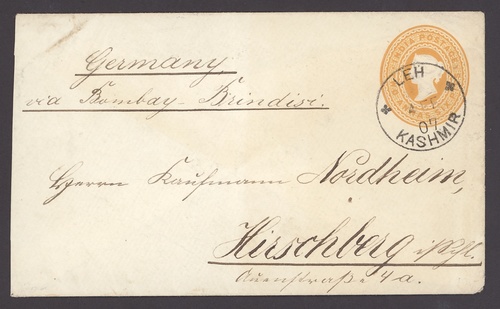 Germany
via Bombay-Brindisi.
INDIA POSTAGE
LEH
07
KASHMIR
Herrn Kaufmann Nordheim,
Hirschberg i/Schl.
Auenstraße 4a.